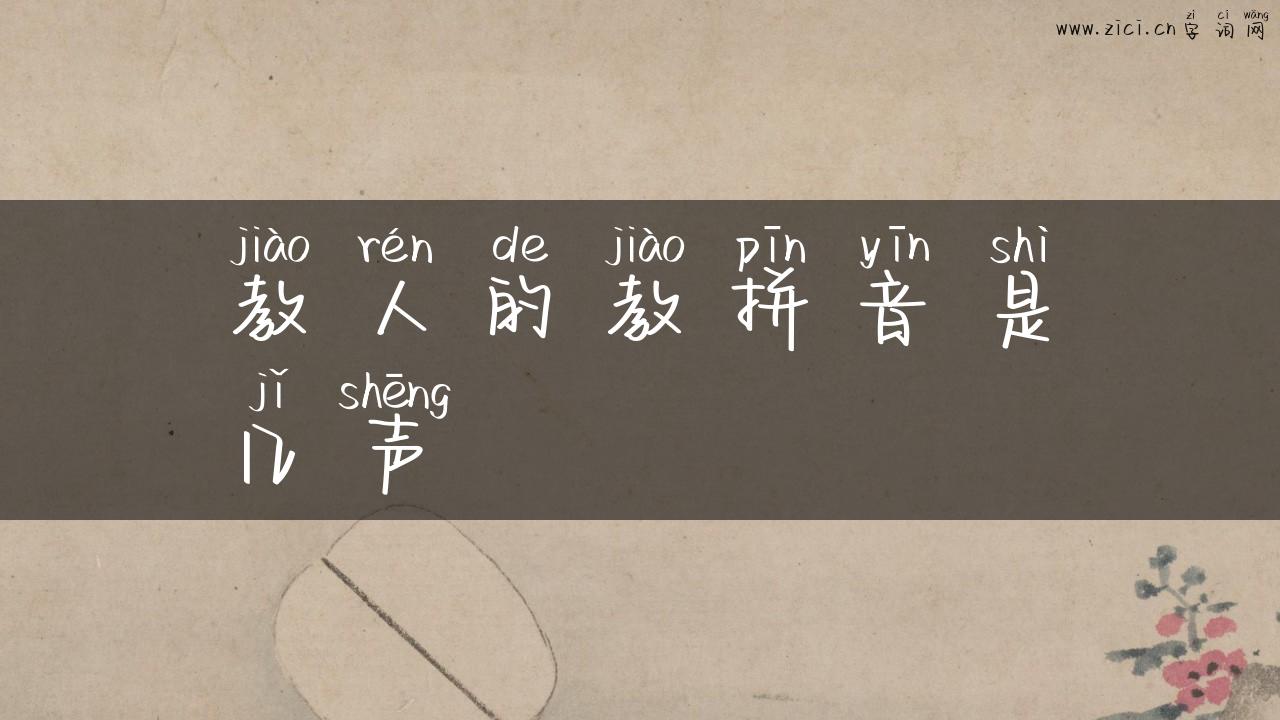 zì cí wǎng
www.zici.cn 字 词 网
jiào rén de jiào pīn yīn shì
教 人 的 教 拼 音 是
jǐ shēng
几 声